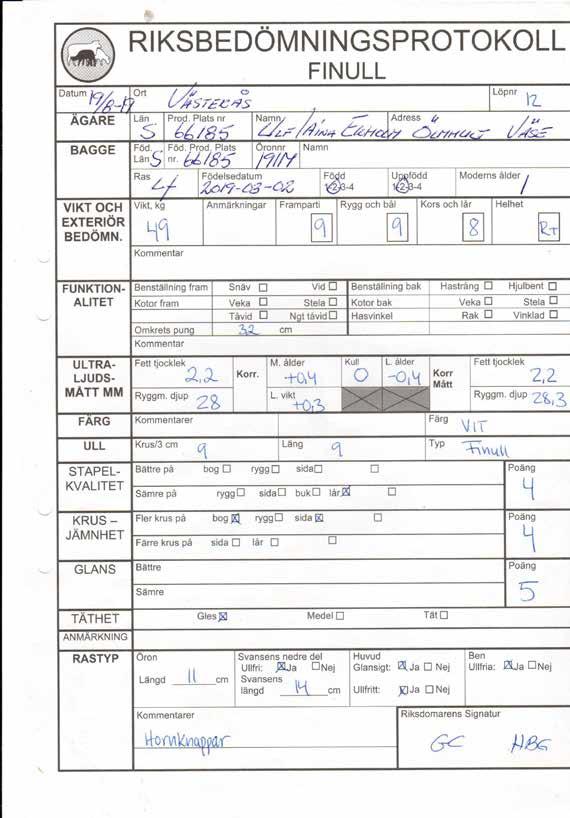 RIKSBEDÖMNINGSPROTOKOLL
FINULL
Datum 19/8-19 Ort VÄSTERÅS Löpnr 12
ÄGARE Län S Prod. Plats nr 66185 Namn Ulf/Aina Ekholm Adress Väse
BAGGE Föd. Län S Föd. Prod. Plats nr. 66185 Öronnr 19114 Namn
Ras Lf Födelsedatum 2019-03-02 Född 1-2-3-4 Uppfödd 1-2-3-4 Moderns ålder 1
VIKT OCH EXTERIÖR BEDÖMN. Vikt, kg 49 Anmärkningar Framparti 9 Rygg och bål 9 Kors och lår 8 Helhet R+
Kommentar
FUNKTION-ALITET Benställning fram Snäv ☐ Vid ☐ Benställning bak Hastrång ☐ Hjulbent ☐
Kotor fram Veka ☐ Stela ☐ Kotor bak Veka ☐ Stela ☐
Tåvid ☐ Ngt tåvid ☐ Hasvinkel Rak ☐ Vinklad ☐
Omkrets pung 32 cm
Kommentar
ULTRA-LJUDS-MÅTT MM Fett tjocklek 2,2 Korr. M. ålder +0,4 Kull 0 L. ålder -0,4 Korr Mått Fett tjocklek 2,2
Ryggm. djup 28 L. vikt +0,3 Ryggm. djup 28,3
FÄRG Kommentarer Färg VIT
ULL Krus/3 cm 9 Läng 9 Typ Finull
STAPEL-KVALITET Bättre på bog ☐ rygg ☐ sida ☐ ☐ Poäng 4
Sämre på rygg ☐ sida ☐ buk ☐ lår ☒ ☐
KRUS – JÄMNHET Fler krus på bog ☒ rygg ☐ sida ☒ ☐ Poäng 4
Färre krus på sida ☐ lår ☐ ☐
GLANS Bättre Poäng 5
Sämre
TÄTHET Gles ☒ Medel ☐ Tät ☐
ANMÄRKNING
RASTYP Öron Svansens nedre del Huvud Ben
Ullfri: ☒ Ja ☐ Nej Glansigt: ☒ Ja ☐ Nej Ullfria: ☒ Ja ☐ Nej
Längd 11 cm Svansens längd 14 cm Ullfritt: ☒ Ja ☐ Nej
Kommentarer Riksdomarens Signatur
Hornknappar GC HBG